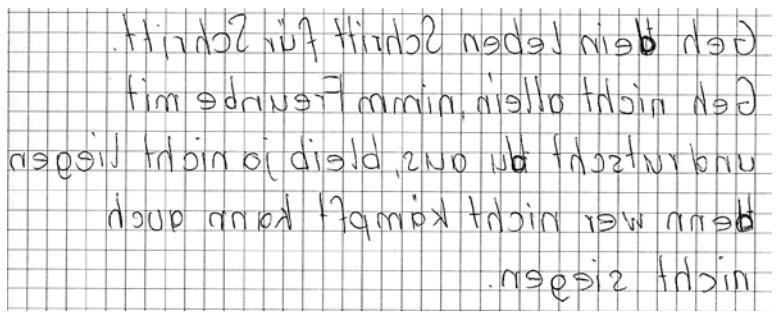 Geh dein leben Schritt für Schritt.
Geh nicht allein, nimm Freunde mit
und rutscht du aus, bleib ja nicht liegen
denn wer nicht kämpft kann auch
nicht siegen.